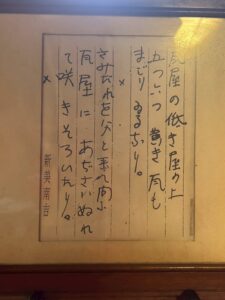 瓦屋の低き屋の上
五つ六つ 黄き瓦も
まじりゐるなり。
×
さみだれを 来れ向ふ
瓦屋に あぢさいぬれ
て咲きそろいたり。
×
新美南吉